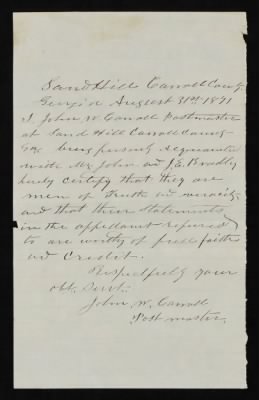 Sand Hill Carroll County
Georgia August 31st 1871
I John W. Carroll Postmaster
at Sand Hill Carroll County
Ga being personly acquainted
with Mr John and J. E. Bradley
herby certify that they are
men of truth and veracity
and that their statements
in the appellant refered
to are worthy of full faith
and credit.
Respectfully your
obt. Servt.
John W. Carroll
Post master.